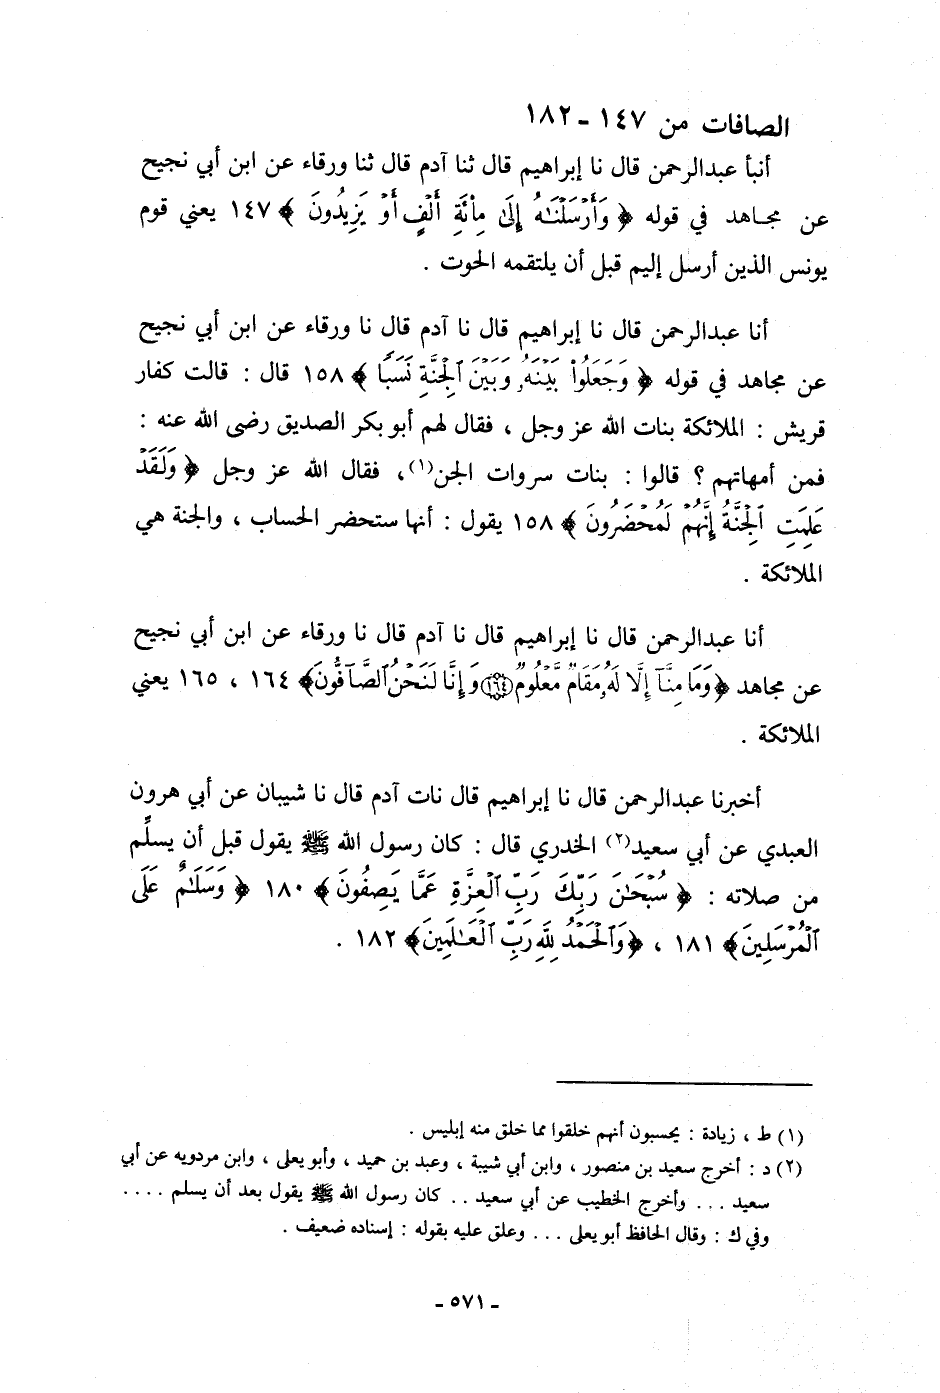 الصافات من ١٤٧ - ١٨٢
أنبأ عبدالرحمن قال نا إبراهيم قال ثنا آدم قال ثنا ورقاء عن ابن أبي نجيح
عن مجاهد في قوله ﴿ وَأَرْسَلْنَـٰهُ إِلَىٰ مِا۟ئَةِ أَلْفٍ أَوْ يَزِيدُونَ ﴾ ١٤٧ يعني قوم
يونس الذين أرسل إليم قبل أن يلتقمه الحوت .
أنا عبدالرحمن قال نا إبراهيم قال نا آدم قال نا ورقاء عن ابن أبي نجيح
عن مجاهد في قوله ﴿ وَجَعَلُوا۟ بَيْنَهُۥ وَبَيْنَ ٱلْجِنَّةِ نَسَبًا ﴾ ١٥٨ قال : قالت كفار
قريش : الملائكة بنات الله عز وجل ، فقال لهم أبو بكر الصديق رضى الله عنه :
فمن أمهاتهم ؟ قالوا : بنات سروات الجن(١)، فقال الله عز وجل ﴿ وَلَقَدْ
عَلِمَتِ ٱلْجِنَّةُ إِنَّهُمْ لَمُحْضَرُونَ ﴾ ١٥٨ يقول : أنها ستحضر الحساب ، والجنة هي
الملائكة .
أنا عبدالرحمن قال نا إبراهيم قال نا آدم قال نا ورقاء عن ابن أبي نجيح
عن مجاهد ﴿ وَمَا مِنَّآ إِلَّا لَهُۥ مَقَامٌ مَّعْلُومٌ ﴿١٦٤﴾ وَإِنَّا لَنَحْنُ ٱلصَّآفُّونَ﴾ ١٦٤ ، ١٦٥ يعني
الملائكة .
أخبرنا عبدالرحمن قال نا إبراهيم قال نات آدم قال نا شيبان عن أبي هرون
العبدي عن أبي سعيد(٢) الخدري قال : كان رسول الله ﷺ يقول قبل أن يسلِّم
من صلاته : ﴿ سُبْحَـٰنَ رَبِّكَ رَبِّ ٱلْعِزَّةِ عَمَّا يَصِفُونَ﴾ ١٨٠ ﴿ وَسَلَـٰمٌ عَلَى
ٱلْمُرْسَلِينَ﴾ ١٨١ ، ﴿وَٱلْحَمْدُ لِلَّهِ رَبِّ ٱلْعَـٰلَمِينَ﴾ ١٨٢ .
(١) ط ، زيادة : يحسبون أنهم خلقوا مما خلق منه إبليس .
(٢) د : أخرج سعيد بن منصور ، وابن أبي شيبة ، وعبد بن حميد ، وأبو يعلى ، وابن مردويه عن أبي
سعيد ... وأخرج الخطيب عن أبي سعيد .. كان رسول الله ﷺ يقول بعد أن يسلم ....
وفي ك : وقال الحافظ أبو يعلى ... وعلق عليه بقوله : إسناده ضعيف .
- ٥٧١ -